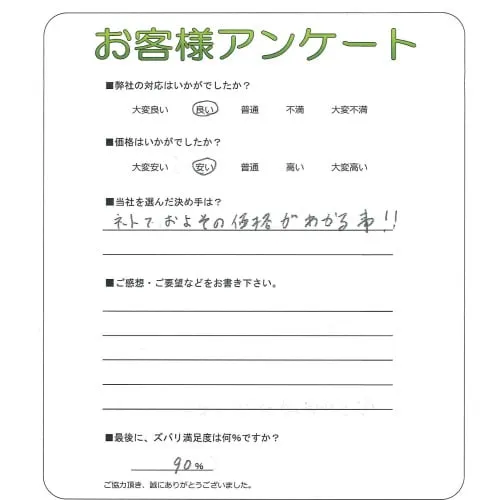 お客様アンケート
■弊社の対応はいかがでしたか？
大変良い 良い 普通 不満 大変不満
■価格はいかがでしたか？
大変安い 安い 普通 高い 大変高い
■当社を選んだ決め手は？
ネットでおよその価格がわかる事!!
■ご感想・ご要望などをお書き下さい。
■最後に、ズバリ満足度は何％ですか？
90％
ご協力頂き、誠にありがとうございました。